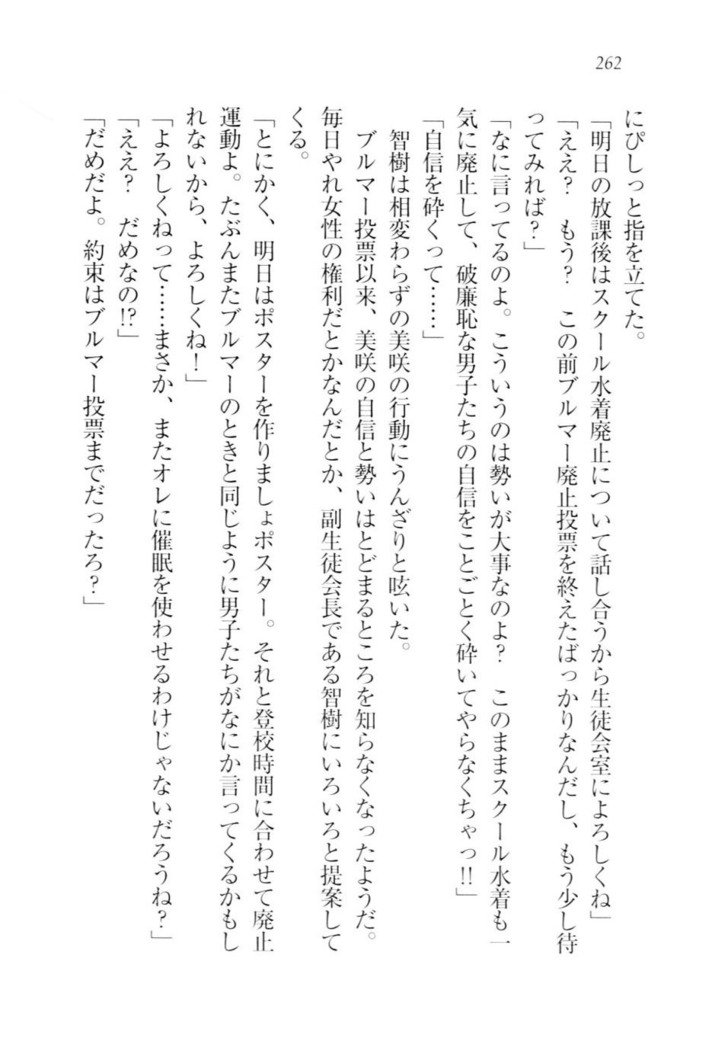 262
にぴしっと指を立てた。
「明日の放課後はスクール水着廃止について話し合うから生徒会室によろしくね」
「ええ？　もう？　この前ブルマー廃止投票を終えたばっかりなんだし、もう少し待
ってみれば？」
「なに言ってるのよ。こういうのは勢いが大事なのよ？　このままスクール水着も一
気に廃止して、破廉恥な男子たちの自信をことごとく砕いてやらなくちゃっ!!」
「自信を砕くって……」
　智樹は相変わらずの美咲の行動にうんざりと呟いた。
　ブルマー投票以来、美咲の自信と勢いはとどまるところを知らなくなったようだ。
毎日やれ女性の権利だとかなんだとか、副生徒会長である智樹にいろいろと提案して
くる。
「とにかく、明日はポスターを作りましょポスター。それと登校時間に合わせて廃止
運動よ。たぶんまたブルマーのときと同じように男子たちがなにか言ってくるかもし
れないから、よろしくね！」
「よろしくねって……まさか、またオレに催眠を使わせるわけじゃないだろうね？」
「ええ？　だめなの!?」
「だめだよ。約束はブルマー投票までだったろ？」